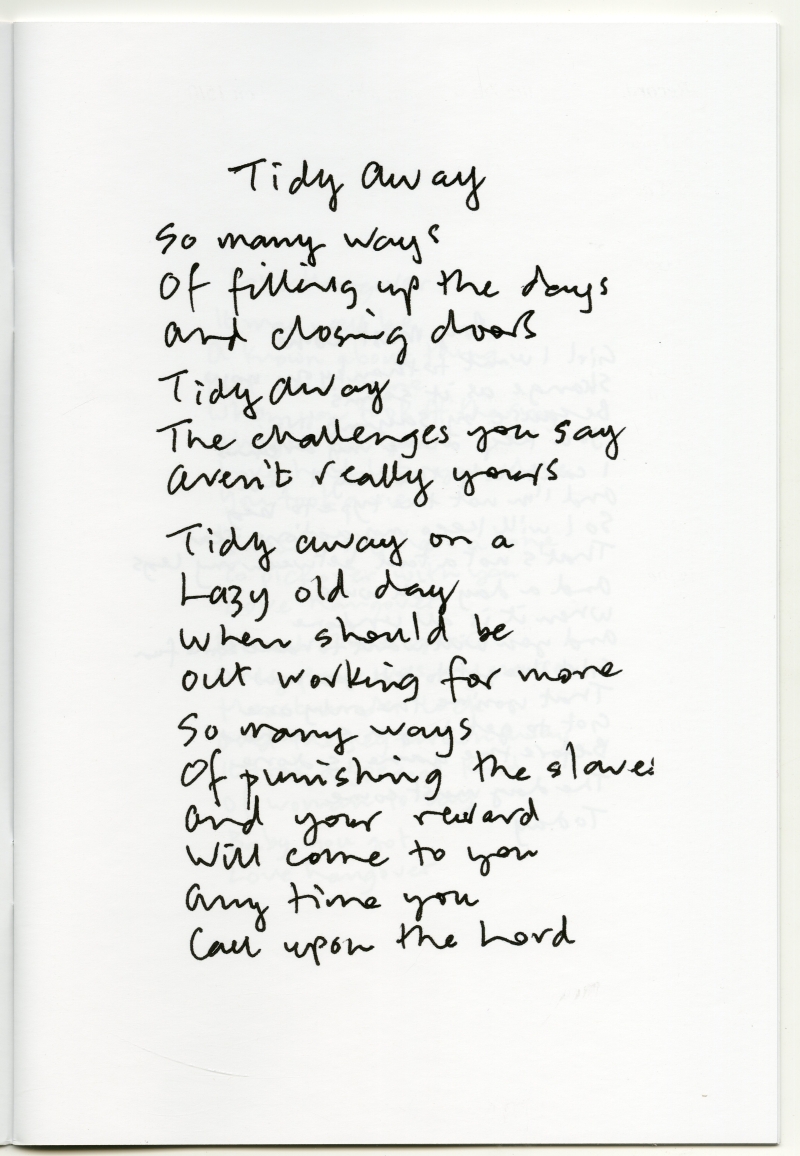 Tidy Away
So many ways
Of filling up the days
and closing doors
Tidy away
The challenges you say
aren't really yours
Tidy away on a
Lazy old day
when should be
out working for more
So many ways
Of punishing the slaves
and your reward
Will come to you
any time you
Call upon the Lord